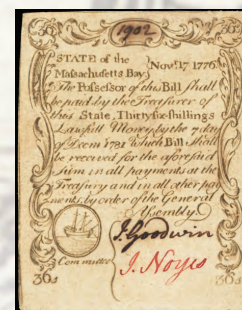 1902
STATE of the
Massachusetts Bay.
Nov.r 17 1776.
The Possessor of this Bill shall
be paid by the Treasurer of
this State, Thirty six shillings
Lawfull Money by the 7 day
of Decem 1781 which Bill shall
be received for the aforesaid
Sum in all payments at the
Treasury and in all other pay
ments by order of the General
Assembly
J. Goodwin
J. Noyes
Committee
36s
36s